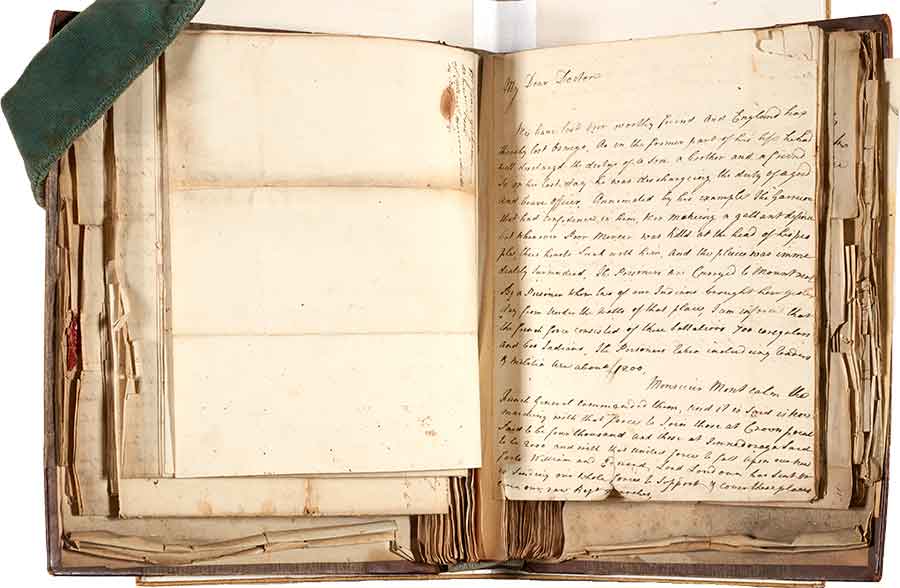 My Dear Doctor
We have lost our worthy friend and England has
thereby lost Oswego, As in the former part of his life he had
well discharged the dutys of a son a brother and a friend
So in his last day he was discharging the duty of a good
and brave officer. Annimated by his example the Garrison
that had confidence in him, were making a gallant defence
but whenever poor Mercer was killd at the head of his peo
ple, their hearts sunk with him, and the places was imme
diately surrendred, The Prisoners are Carryed to Montreal
By a Prisoner whom two of our Indians brought here yester
day from under the walls of that place, I am informed that
the french force consisted of three battalions 700 iregulars
and 600 Indians. The Prisoners taken including traders
& militia are about 1200.
Monsieur Montcalm the
french General commanded them, and it is said is now
marching with that force to Join those at Crown point
Said to be four thousand and those at
to be 2000 and with that united force to fall upon
forts William and Edward, Lord Loudoun has sent or
is sending our whole forces to Support & cover these places